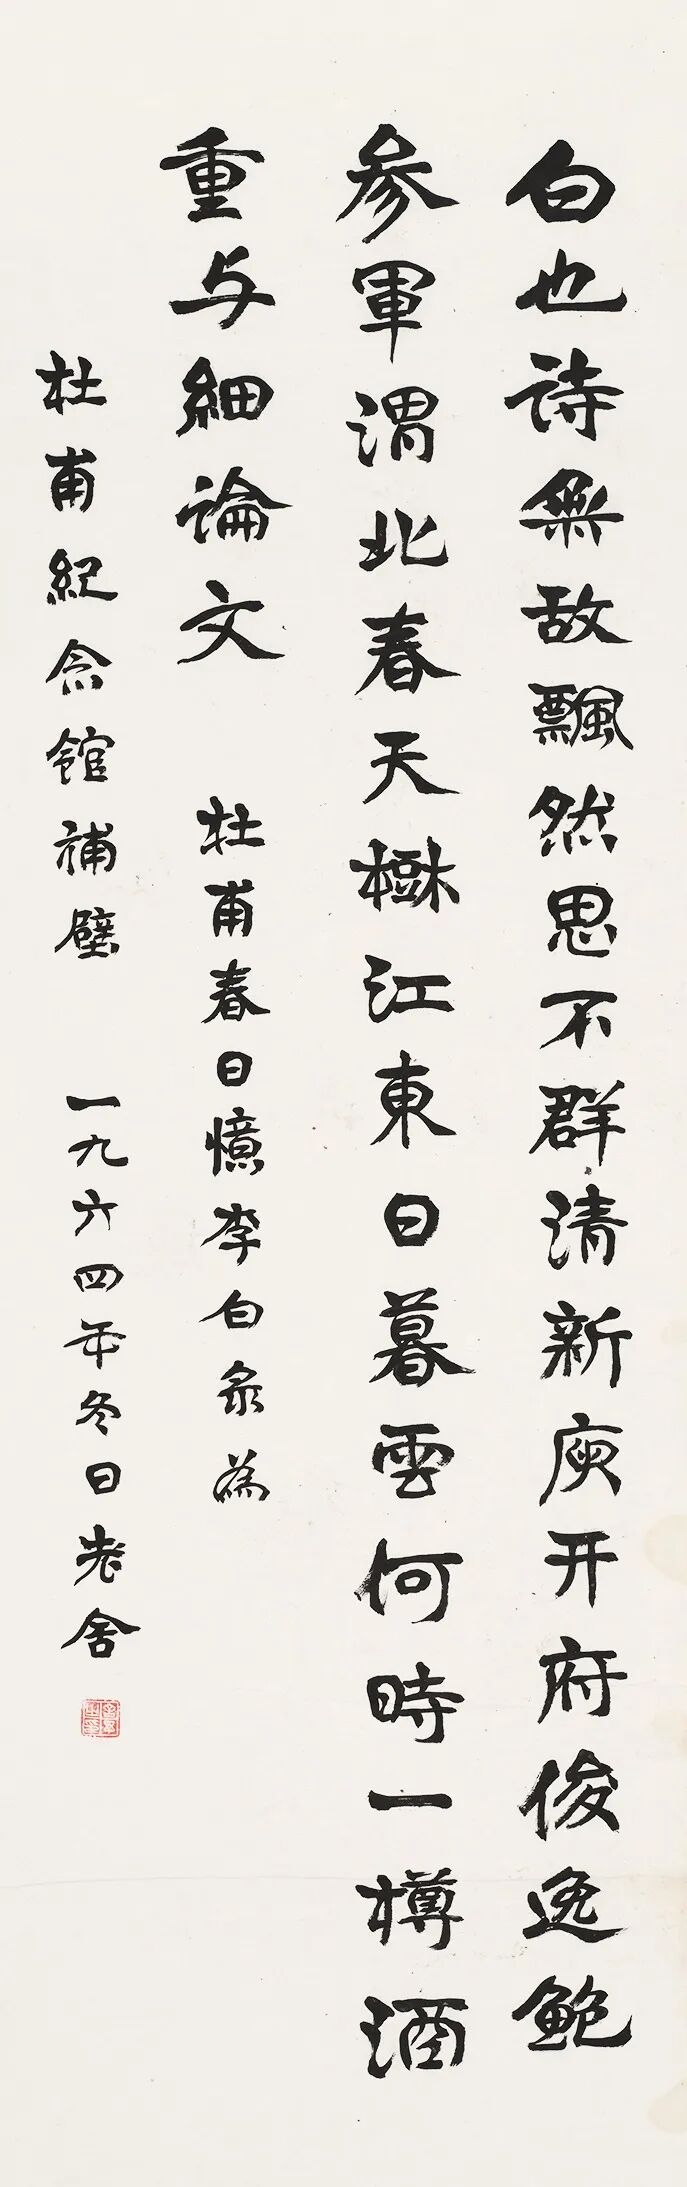 白也詩無敌飄然思不群清新庾开府俊逸鮑
参軍渭北春天樹江東日暮雲何時一樽酒
重与細論文 杜甫春日憶李白录為
杜甫紀念館補壁 一九六四年冬日老舍